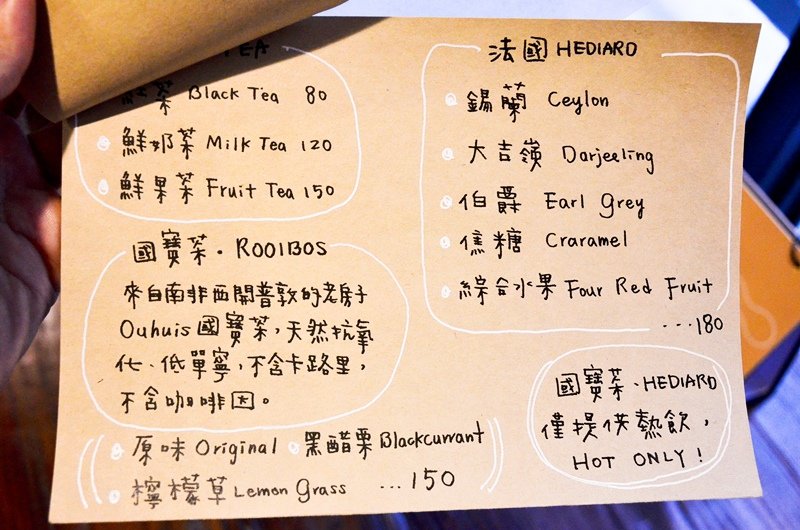 TEA
茶 Black Tea 80
鮮奶茶 Milk Tea 120
鮮果茶 Fruit Tea 150
國寶茶·ROOIBOS
來自南非西開普敦的老房子
Ouhuis國寶茶，天然抗氧
化、低單寧，不含卡路里，
不含咖啡因。
原味 Original 黑醋栗 Blackcurrant
檸檬草 Lemon Grass ...150
法國 HEDIARD
錫蘭 Ceylon
大吉嶺 Darjeeling
伯爵 Earl Grey
焦糖 Craramel
綜合水果 Four Red Fruit
...180
國寶茶、HEDIARD
僅提供熱飲，
HOT ONLY!